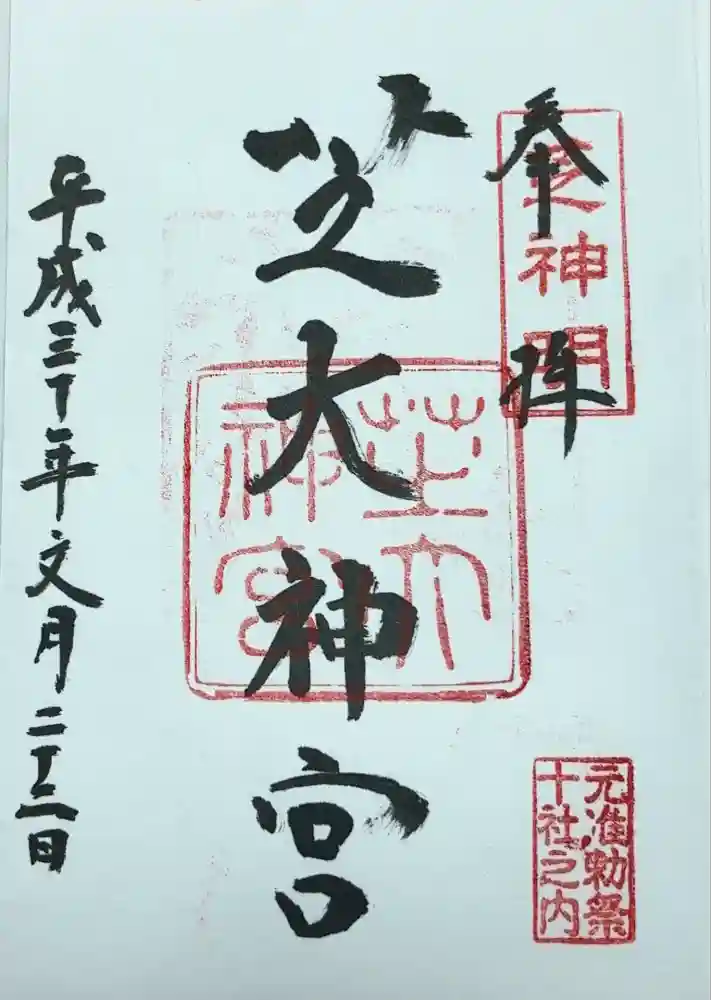 奉拝
芝神明
元准勅祭
十社之内
芝大神宮
芝大
神宮
平成三十年文月二十三日